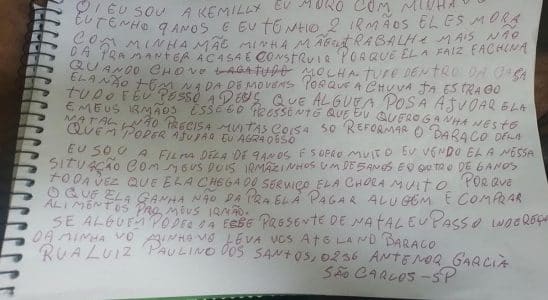 OI EU SOU A KEMILLY EU MORO COM MINHA VÓ
EU TENHO 9 ANOS E EU TENHO 2 IRMÃOS ELES MORA
COM MINHA MÃE MINHA MÃE TRABALHE MAIS NÃO
DA PRA MANTER A CASA E CONSTRUIR PORQUE ELA FAIZ FACHINA
QUANDO CHOVE MOLHA TUDO DENTRO DA CASA
ELA NÃO TEM NADA DE MOVENS PORQUE A CHUVA JA ESTRAGO
TUDO E EU PESSO A DEUS QUE ALGUEM POSA AJUDAR ELA
E MEUS IRMÃOS ESSE É O PRESSENTE QUE EU QUERO GANHA NESTE
NATAL NÃO PRECISA MUITAS COISA SO REFORMAR O BARACO DELA
QUEM PODER AJUDAR EU AGRADESO
EU SOU A FILHA DELA DE 9 ANOS E SOFRO MUITO EU VENDO ELA NESSA
SITUAÇÃO COM MEUS DOIS IRMAZINHOS UM DE 5 ANOS E O OUTRO DE 6 ANOS
TODA VEZ QUE ELA CHEGA DO SERVIÇO ELA CHORA MUITO PORQUE
O QUE ELA GANHA NÃO DA PRA ELA PAGAR ALUGÉM E COMPRAR
ALIMENTOS PRO MEUS IRMÃO.
SE ALGUEM PODER DA ESSE PRESENTE DE NATAL EU PASSO INDEREÇO
DA MINHA VO MINHA VO LEVA VOS ATE LA NO BARACO
RUA LUIZ PAULINO DOS SANTOS, 0236 ANTENOR GARCIA
SÃO CARLOS-SP